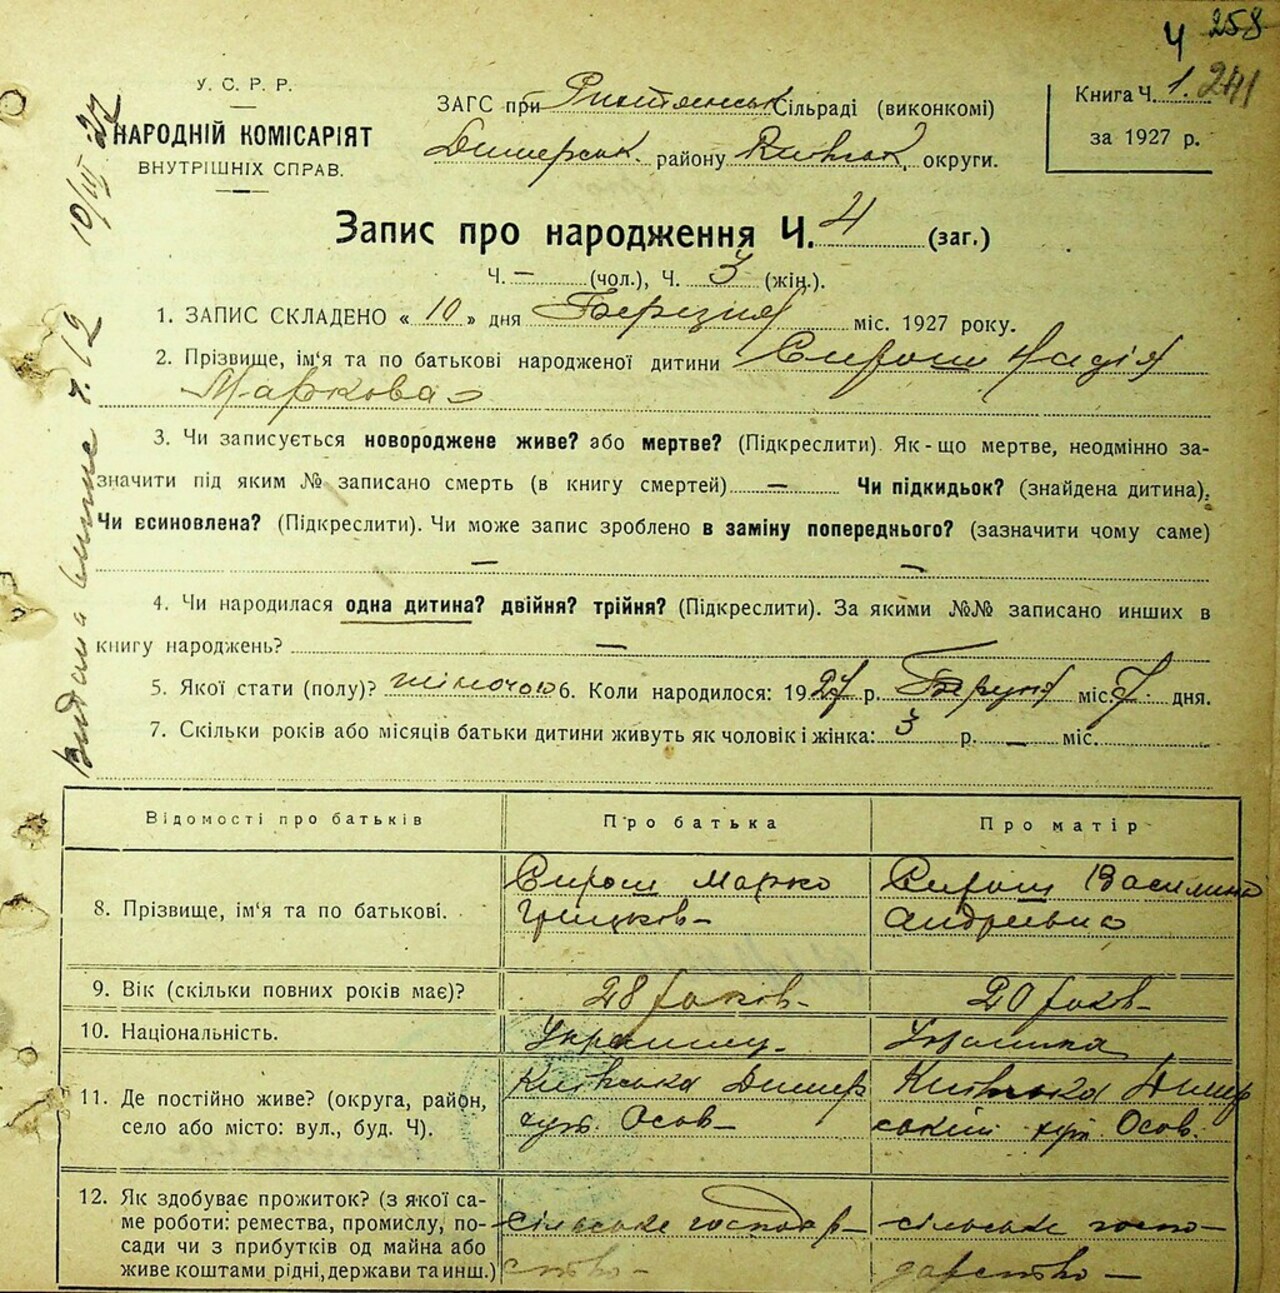 Ч 258
241
У. С. Р. Р.
НАРОДНІЙ КОМІСАРІЯТ
ВНУТРІШНІХ СПРАВ.
ЗАГС при Сільраді (виконкомі)
Димерськ. району Київськ. округи.
Книга Ч. 1.
за 1927 р.
Запис про народження Ч. 4 (заг.)
Ч. — (чол.), Ч. 3 (жін.).
1. ЗАПИС СКЛАДЕНО « 10 » дня Березня міс. 1927 року.
2. Прізвище, ім'я та по батькові народженої дитини Сирош Надія
Маркова
3. Чи записується новороджене живе? або мертве? (Підкреслити). Як-що мертве, неодмінно за-
значити під яким № записано смерть (в книгу смертей) — Чи підкидьок? (знайдена дитина),
Чи всиновлена? (Підкреслити). Чи може запис зроблено в заміну попереднього? (зазначити чому саме)
— —
4. Чи народилася одна дитина? двійня? трійня? (Підкреслити). За якими №№ записано инших в
книгу народжень? —
5. Якої стати (полу)? жіночою 6. Коли народилося: 1927 р. міс. 7 дня.
7. Скільки років або місяців батьки дитини живуть як чоловік і жінка: 3 р. — міс.
Відомості про батьків Про батька Про матір
8. Прізвище, ім'я та по батькові.
Сирош Марко
Грицков-
Сирош Василина
Андріївна
9. Вік (скільки повних років має)? 28 років- 20 років-
10. Національність. Українец.- Українка
11. Де постійно живе? (округа, район,
село або місто: вул., буд. Ч).
Київська Димер
хут. Осов-
Київська Димер
ський хут. Осов.
12. Як здобуває прожиток? (з якої са-
ме роботи: ремества, промислу, по-
сади чи з прибутків од майна або
живе коштами рідні, держави та инш.)
сільське господар-
ство-
сільське госпо-
дарство-
10/III 27